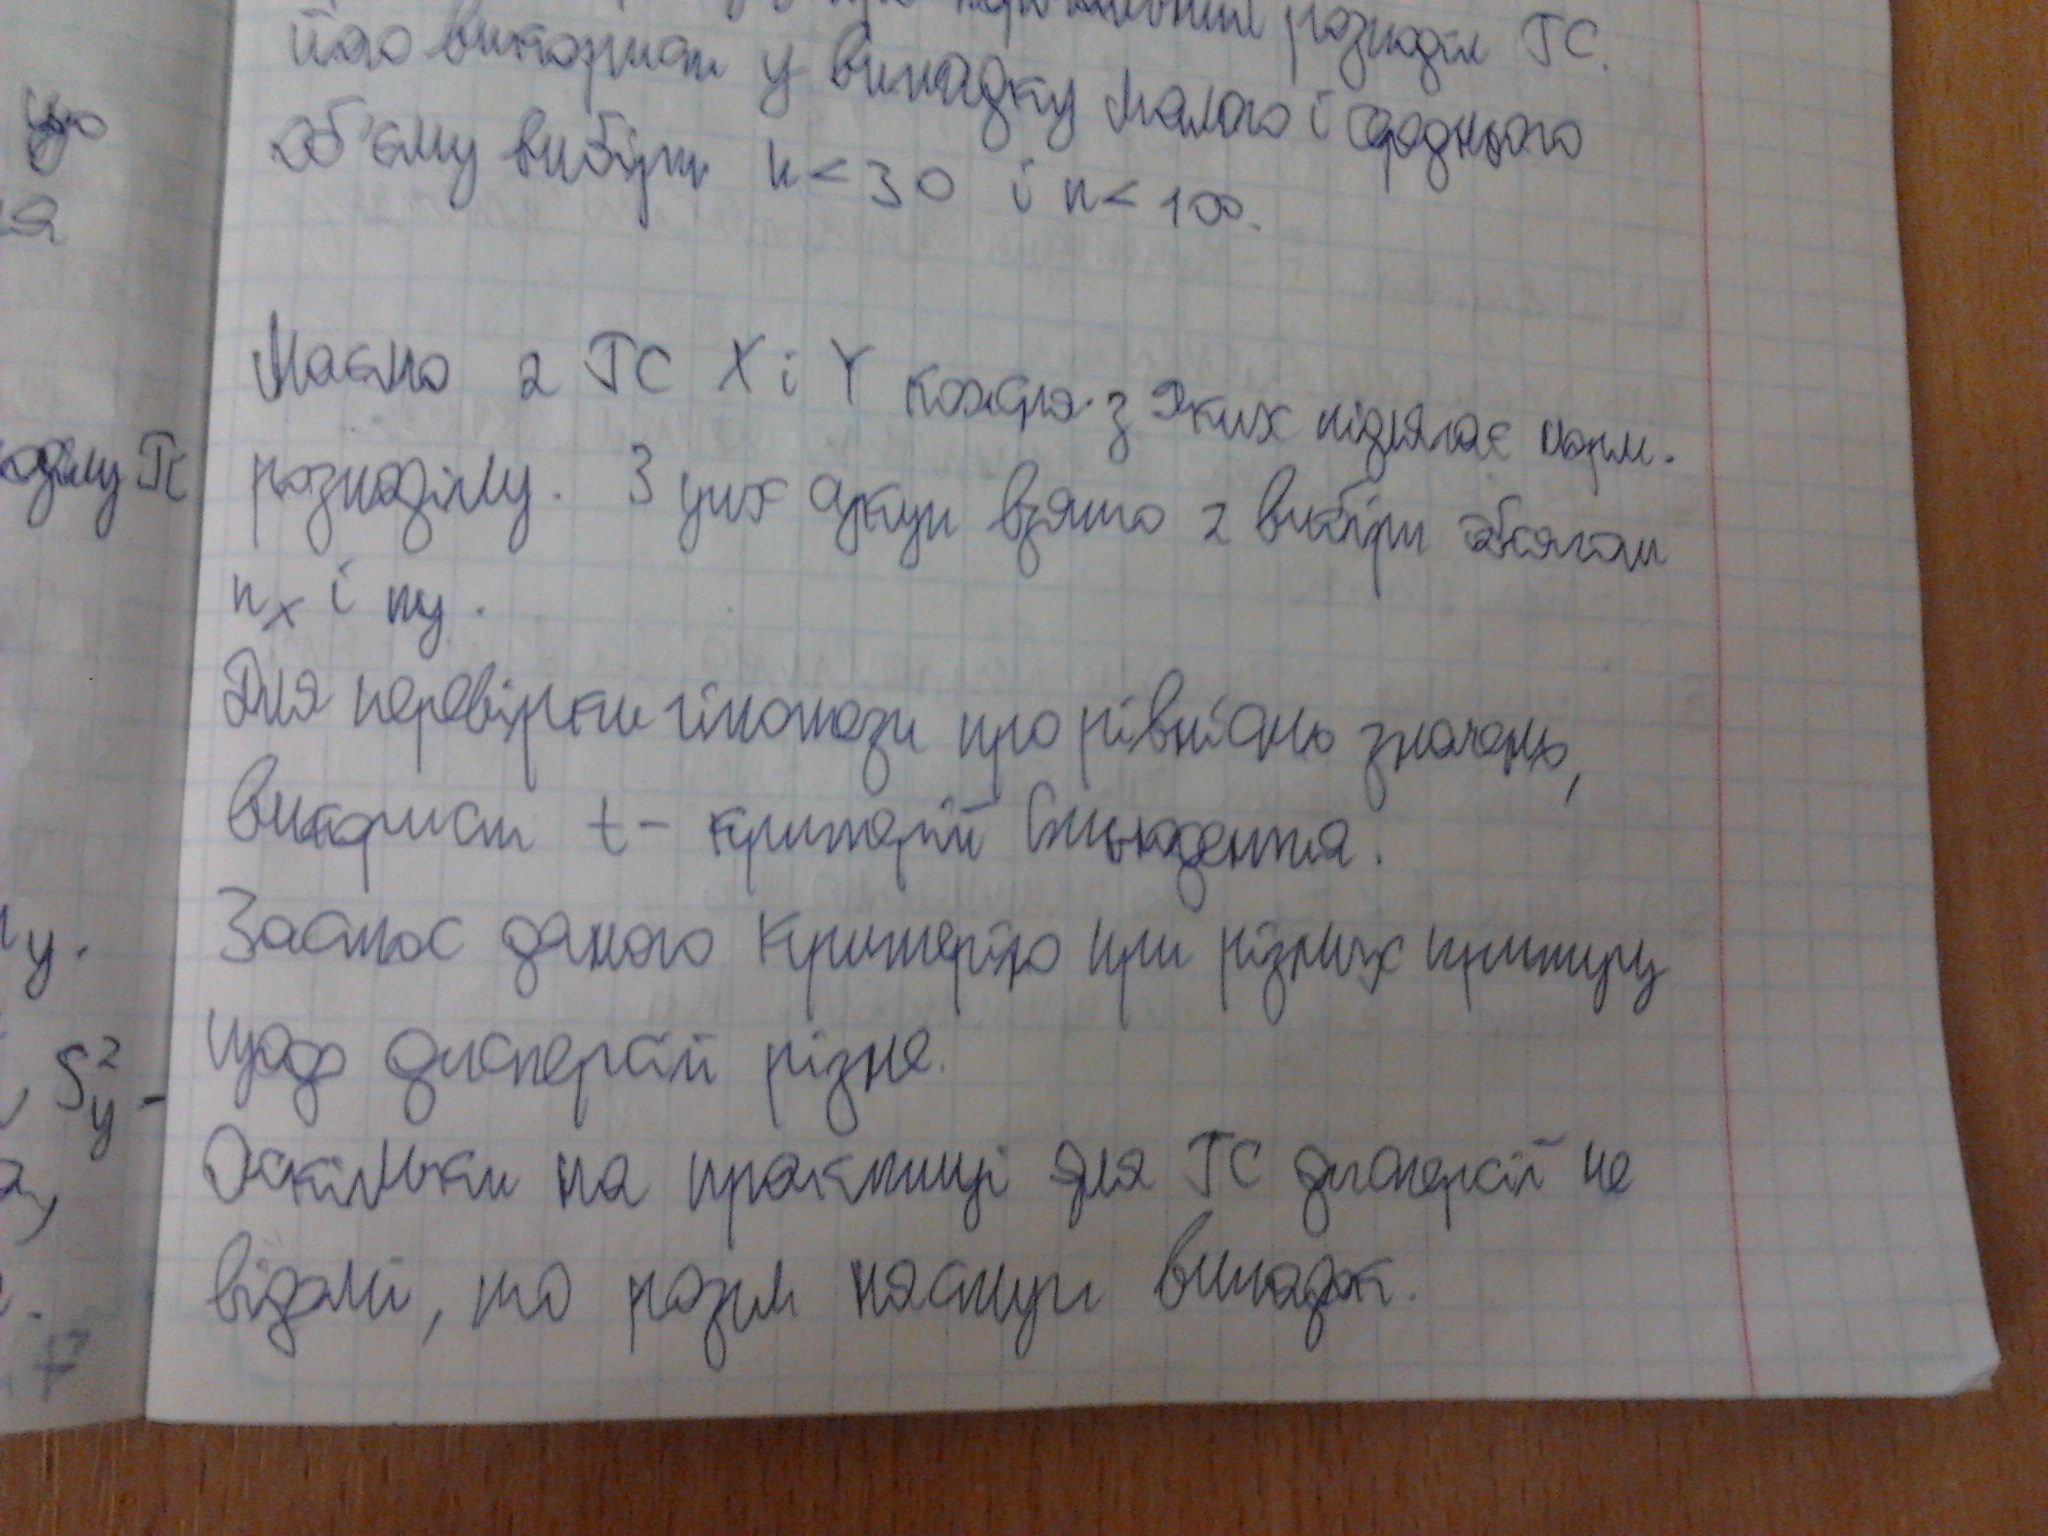 розподіл ГС.
його використ у випадку малого і середнього
об'єму вибірки n < 30 і n < 100.
Маємо 2 ГС X і Y кожна з яких підлягає норм.
розподілу. З цих сукуп взято 2 вибірки обсягом
nx і ny.
Для перевірки гіпотези про рівність значень,
використ t - критерій Стьюдента.
Застос даного критерію при різних припущ
щодо дисперсій різне.
Оскільки на практиці для ГС дисперсії не
відомі, то розгл наступн випадк.
цю
ня
поділу ГС
y.
, S²y -